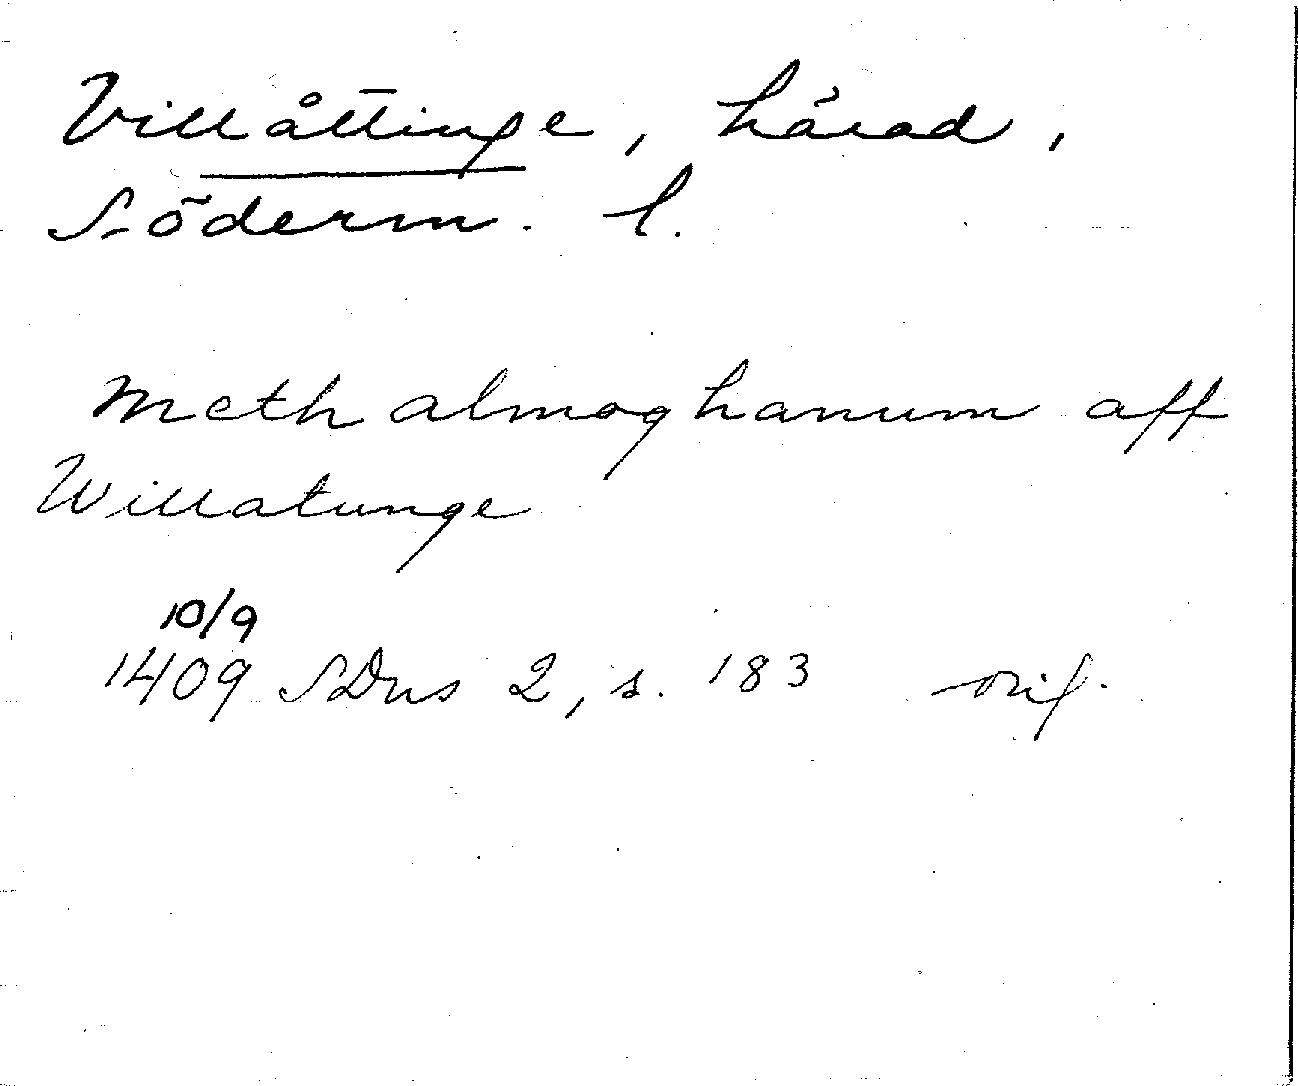 Villåttinge, härad,
Söderm. l.
meth almoghanum aff
Willatunge
10/9
1409 SDns 2, s. 183 orig.